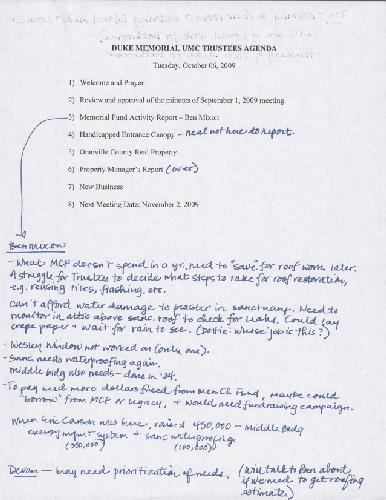 DUKE MEMORIAL UMC TRUSTEES AGENDA
Tuesday, October 06, 2009
1) Welcome and Prayer
2) Review and approval of the minutes of September 1, 2009 meeting
3) Memorial Fund Activity Report – Ben Mixon
4) Handicapped Entrance Canopy – Neal not here to report.
5) Granville County Real Property
6) Property Manager's Report (over)
7) New Business
8) Next Meeting Date: November 2, 2009
Ben Mixon
- What MCF doesn't spend in a yr, need to "save" for roof work later.
A struggle for Trustees to decide what steps to take for roof restoration,
e.g. reusing tiles, flashing, etc.
Can't afford water damage to plaster in sanctuary. Need to
monitor in attic above sanc. roof to check for leaks. Could lay
crepe paper + wait for rain to see. (Dottie: whose job is this?)
- Wesley Window not worked on (only one).
- Sanc needs waterproofing again.
Middle bldg also needs - done in '94.
- To pay need more dollars freed from Men Cl Fund, maybe could
"borrow" from MCF or Legacy, + would need fundraising campaign.
When Eric was here, raised 450,000 – middle bldg
energy mgmt system + sanc waterproofing
(350,000) (100,000)
Devon – may need prioritization of needs. (Will talk to Ben about
if we need to get roofing
estimate)